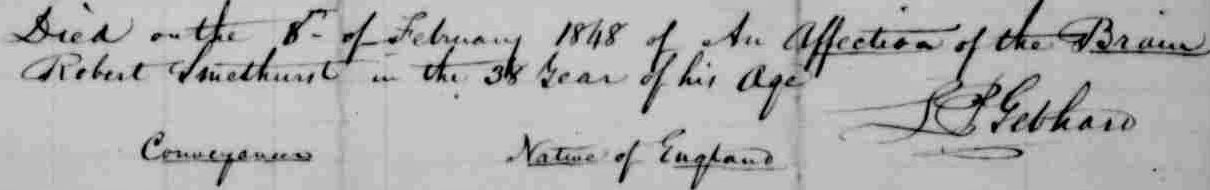 Died on the 8th of February 1848 of An Affection of the Brain
Robert Smethurst in the 38 Year of his Age
L P Gebhard
Conveyancer Native of England